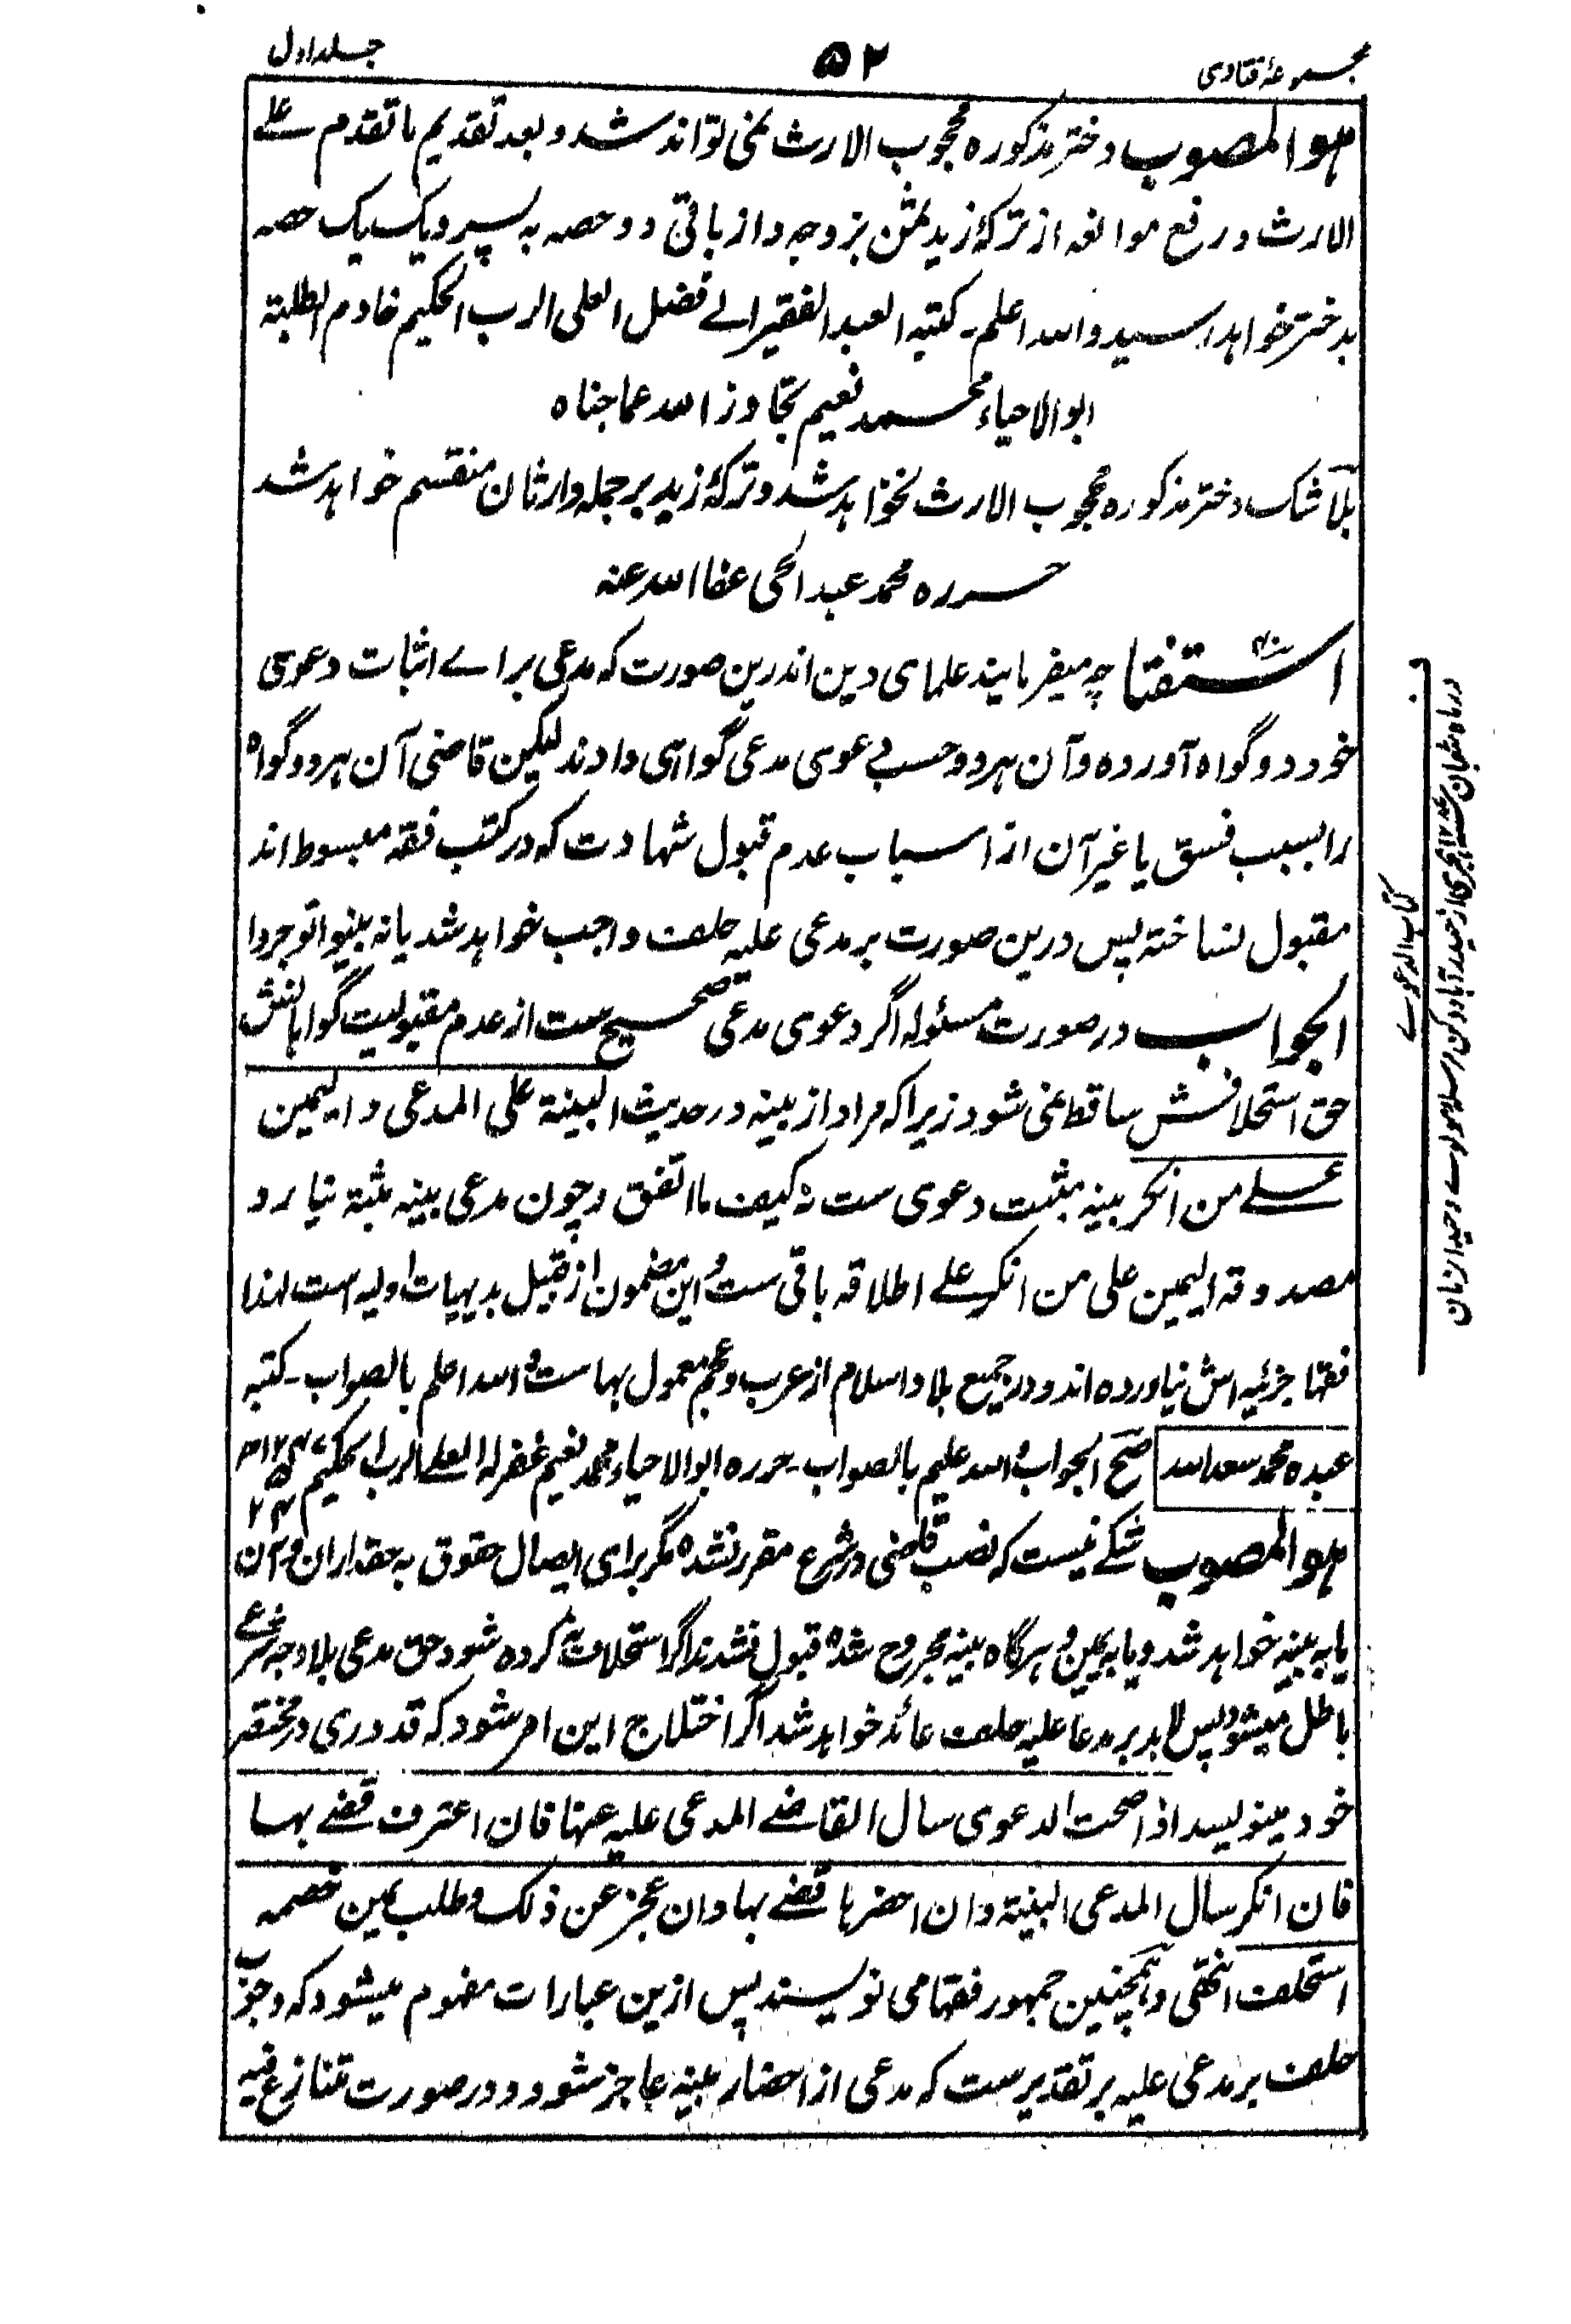 مجموعۂ فتاوی
۵۲
جلد اول
ہو المصوب دختر مذکورہ محجوب الارث نمی تواند شد و بعد تقدیم ما تقدم علے
الارث و رفع موانعہ از ترکۂ زید ثمن بزوجہ و از باقی دو حصہ بہ پسر و یک یک حصہ
بدختر خواہد رسید واللہ اعلم۔ کتبہ العبد الفقیر الے فضل العلی الرب الحکیم خادم الطلبۃ
ابو الاحیاء محمد نعیم تجاوز اللہ عما جناہ
بلا شک دختر مذکورہ محجوب الارث نخواہد شد و ترکۂ زید بر جملہ وارثان منقسم خواہد شد
حررہ محمد عبد الحی عفا اللہ عنہ
استفتا چہ میفرمایند علمای دین اندرین صورت کہ مدعی براے اثبات دعوی
خود دو گواہ آوردہ و آن ہر دو حسب دعوی مدعی گواہی دادند لیکن قاضی آن ہر دو گواہ
را بسبب فسق یا غیر آن از اسباب عدم قبول شہادت کہ در کتب فقہ مبسوط اند
مقبول نساختہ پس درین صورت بر مدعی علیہ حلف واجب خواہد شد یا نہ بینوا توجروا
الجواب در صورت مسئولہ اگر دعوی مدعی صحیح ست از عدم مقبولیت گواہانش
حق استحلافش ساقط نمی شود زیرا کہ مراد از بینہ در حدیث البینۃ علی المدعی و الیمین
علے من انکر بینہ مثبت دعوی ست نہ کیف ما اتفق و چون مدعی بینہ مثبتہ نیارد
مصدوقہ الیمین علی من انکر علے اطلاقہ باقی ست و این مضمون از قبیل بدیہیات اولیہ است لہذا
فقہا جزئیہ اش نیاوردہ اند و در جمیع بلاد اسلام از عرب و عجم معمول بہا ست واللہ اعلم بالصواب۔ کتبہ
عبدہ محمد سعد اللہ صح الجواب واللہ علیم بالصواب۔ حررہ ابو الاحیاء محمد نعیم غفر لہ العلے الرب الحکیم
ہو المصوب شکے نیست کہ نصب قاضی در شرع مقرر نشدہ مگر برای ایصال حقوق بہ حقداران و آن
یا بہ بینہ خواہد شد و یا بہ یمین و ہرگاہ بینہ مجروح شدہ قبول نشدند اگر استحلاف نکردہ شود حق مدعی بلا وجہ شرعے
باطل میشود پس لا بد بر مدعا علیہ حلف عائد خواہد شد اگر اختلاج این امر شود کہ قدوری در مختصر
خود مینویسد اذا صحت الدعوی سال القاضے المدعی علیہ عنہا فان اعترف قضے بہا
فان انکر سال المدعی البینۃ و ان احضرہا قضے بہا و ان عجز عن ذلک و طلب یمین خصمہ
استحلف انتھی و ہمچنین جمہور فقہا می نویسند پس ازین عبارات مفہوم میشود کہ وجوب
حلف بر مدعی علیہ بر تقدیر ست کہ مدعی از احضار بینہ عاجز شود و در صورت متنازع فیہ
کتاب الدعوے
در ماہ شعبان ہجری از حیدرآباد دکن مرسلہ مولوے وحید الزمان